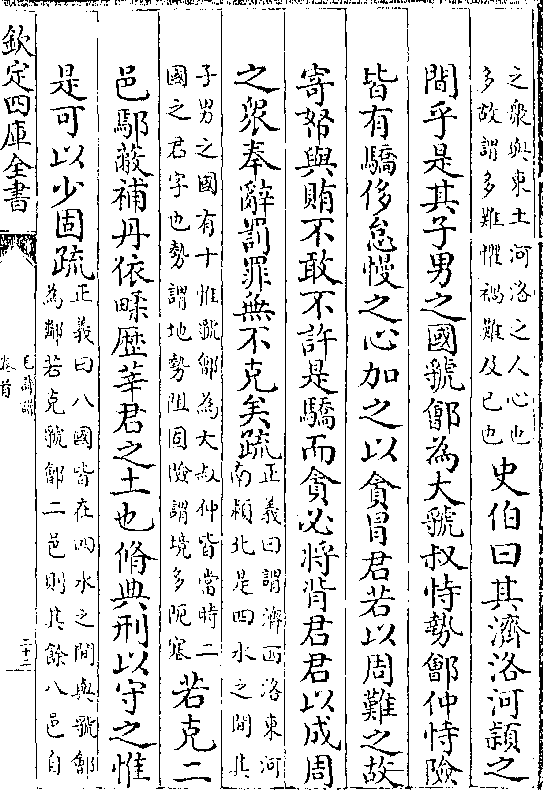 之衆與東土河洛之人心也
多故謂多難懼禍難及已也
史伯曰其濟洛河頴之
間乎是其子男之國虢鄶為大虢叔恃勢鄶仲恃險
皆有驕侈怠慢之心加之以貪冒君若以周難之故
寄帑與賄不敢不許是驕而貪必將背君君以成周
之衆奉辭罰罪無不克矣疏
正義曰謂濟西洛東河
南頴北是四水之間其
子男之國有十惟虢鄶為大叔仲皆當時二
國之君字也勢謂地勢阻固險謂境多阨塞
若克二
邑鄢蔽補丹依㽥歷莘君之土也脩典刑以守之惟
是可以少固疏
正義曰八國皆在四水之間與虢鄶
為鄰若克虢鄶二邑則其餘八邑自
欽定四庫全書
毛詩譜
卷首
二十二